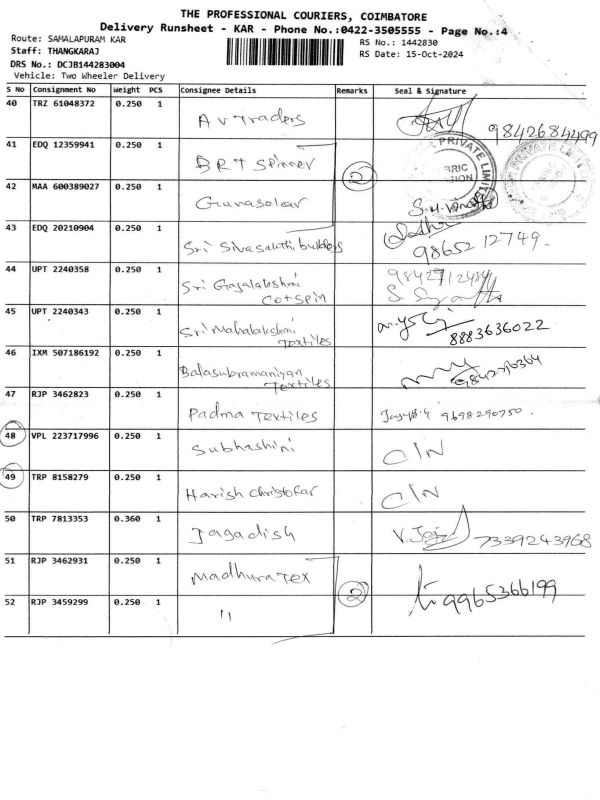 THE PROFESSIONAL COURIERS, COIMBATORE
Delivery Runsheet - KAR - Phone No.:0422-3505555 - Page No.:4
Route: SAMALAPURAM KAR
RS No.: 1442830
Staff: THANGKARAJ
RS Date: 15-Oct-2024
DRS No.: DCJB144283004
Vehicle: Two Wheeler Delivery
S No Consignment No Weight PCS Consignee Details Remarks Seal & Signature
40 TRZ 61048372 0.250 1 A V Traders 9842684499
41 EDQ 12359941 0.250 1 BRT Spinner
PRIVATE LIMITED
2
42 MAA 600389027 0.250 1 Gunasolar
43 EDQ 20210904 0.250 1 Sri Sivasakthi builders 98652 12749.
44 UPT 2240358 0.250 1 Sri Gajalakshmi
Cotspin
45 UPT 2240343 0.250 1 Sri Mahalakshmi
Textiles 8883636022
46 IXM 507186192 0.250 1 Balasubramaniyan
Textiles
47 RJP 3462823 0.250 1 Padma Textiles 9698290750.
48 VPL 223717996 0.250 1 Subhashini C/N
49 TRP 8158279 0.250 1 Harish Christofar C/N
50 TRP 7813353 0.360 1 Jagadish 7339243968
51 RJP 3462931 0.250 1 Madhura Tex
2 9965366199
52 RJP 3459299 0.250 1 "